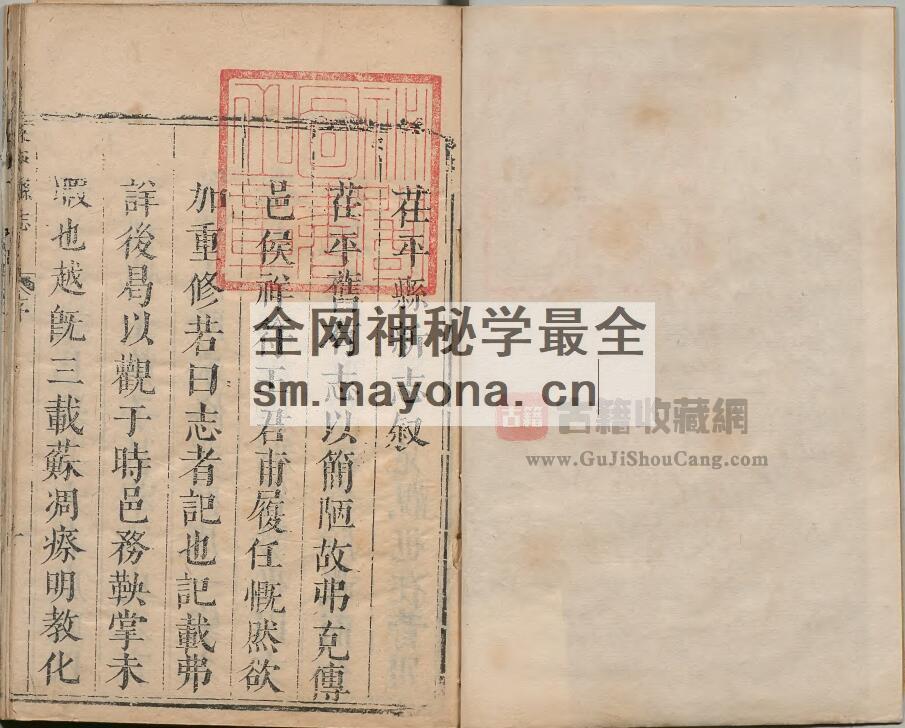 茌平縣新志叙
茌平舊志以簡陋故弗克傳
邑侯祥王君甫履任慨然欲
加重修若曰志者記也記載弗
詳後曷以觀于時邑務鞅掌未
暇也越旣三載蘇凋瘵明教化
全网神秘学最全
sm.nayona.cn
古籍
古籍收藏網
www.GuJiShouCang.com